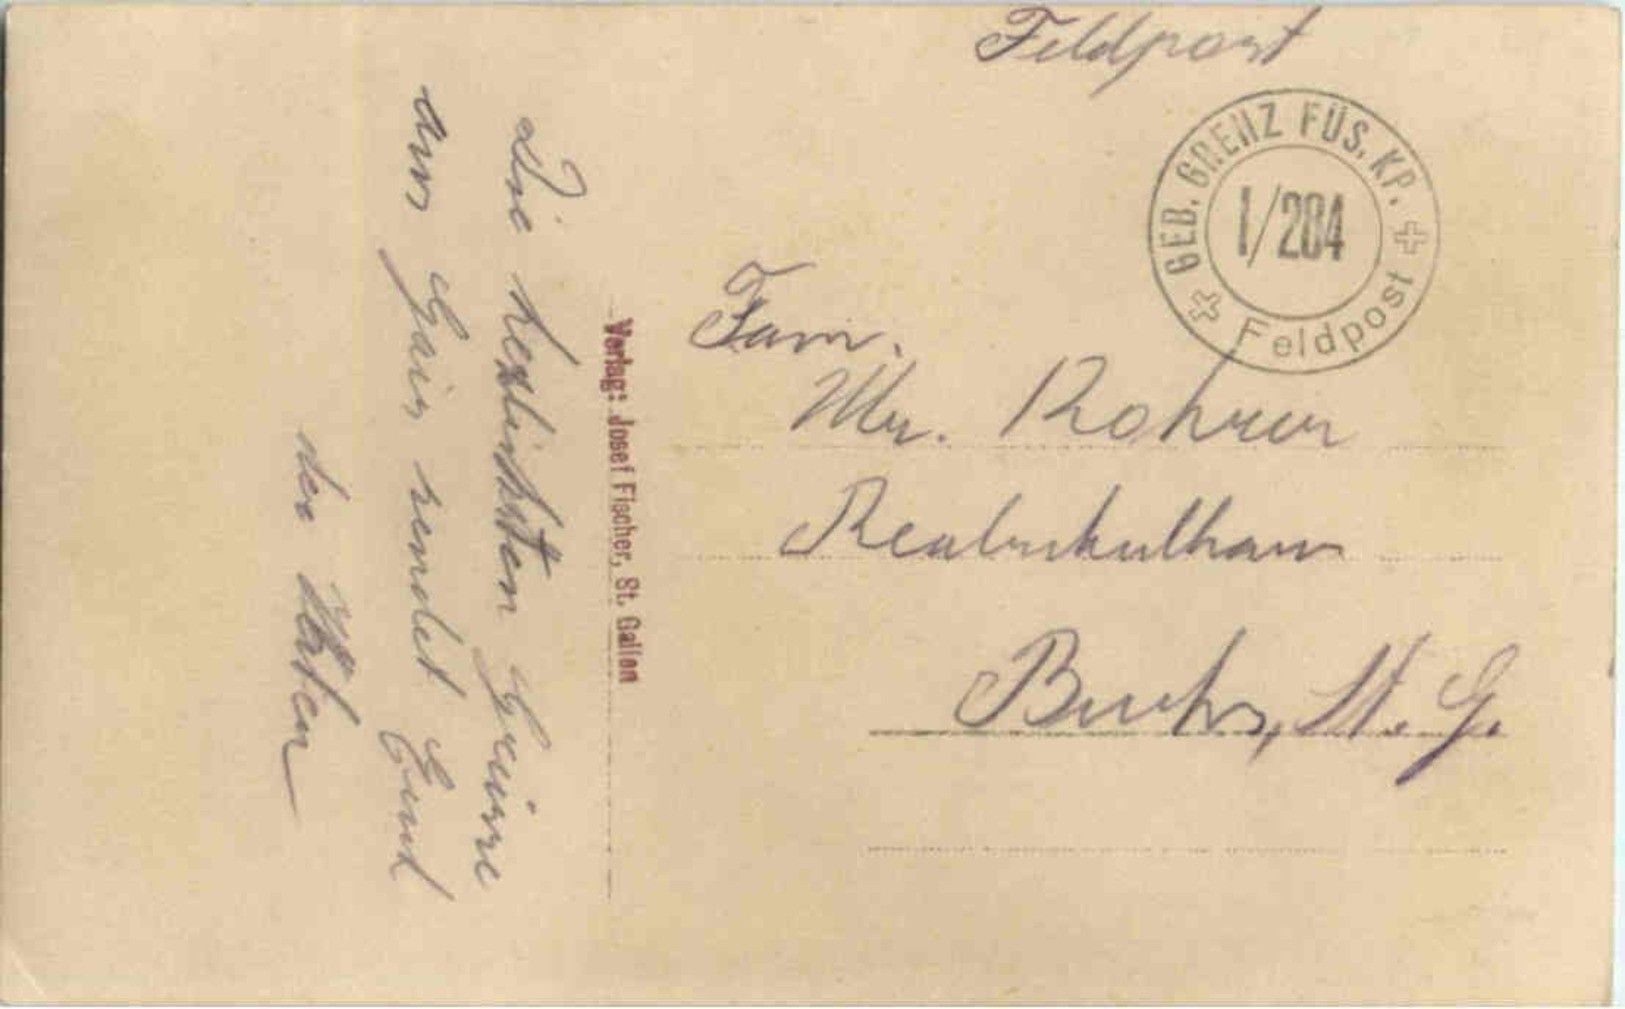 Feldpost
GEB. GRENZ FÜS. KP.
I/284
Feldpost
Fam.
Rohrer
Realschulhaus
Buchs, St. G.
Verlag: Josef Fischer, St. Gallen
Die herzlichsten Grüsse
aus Gais sendet Euch
der